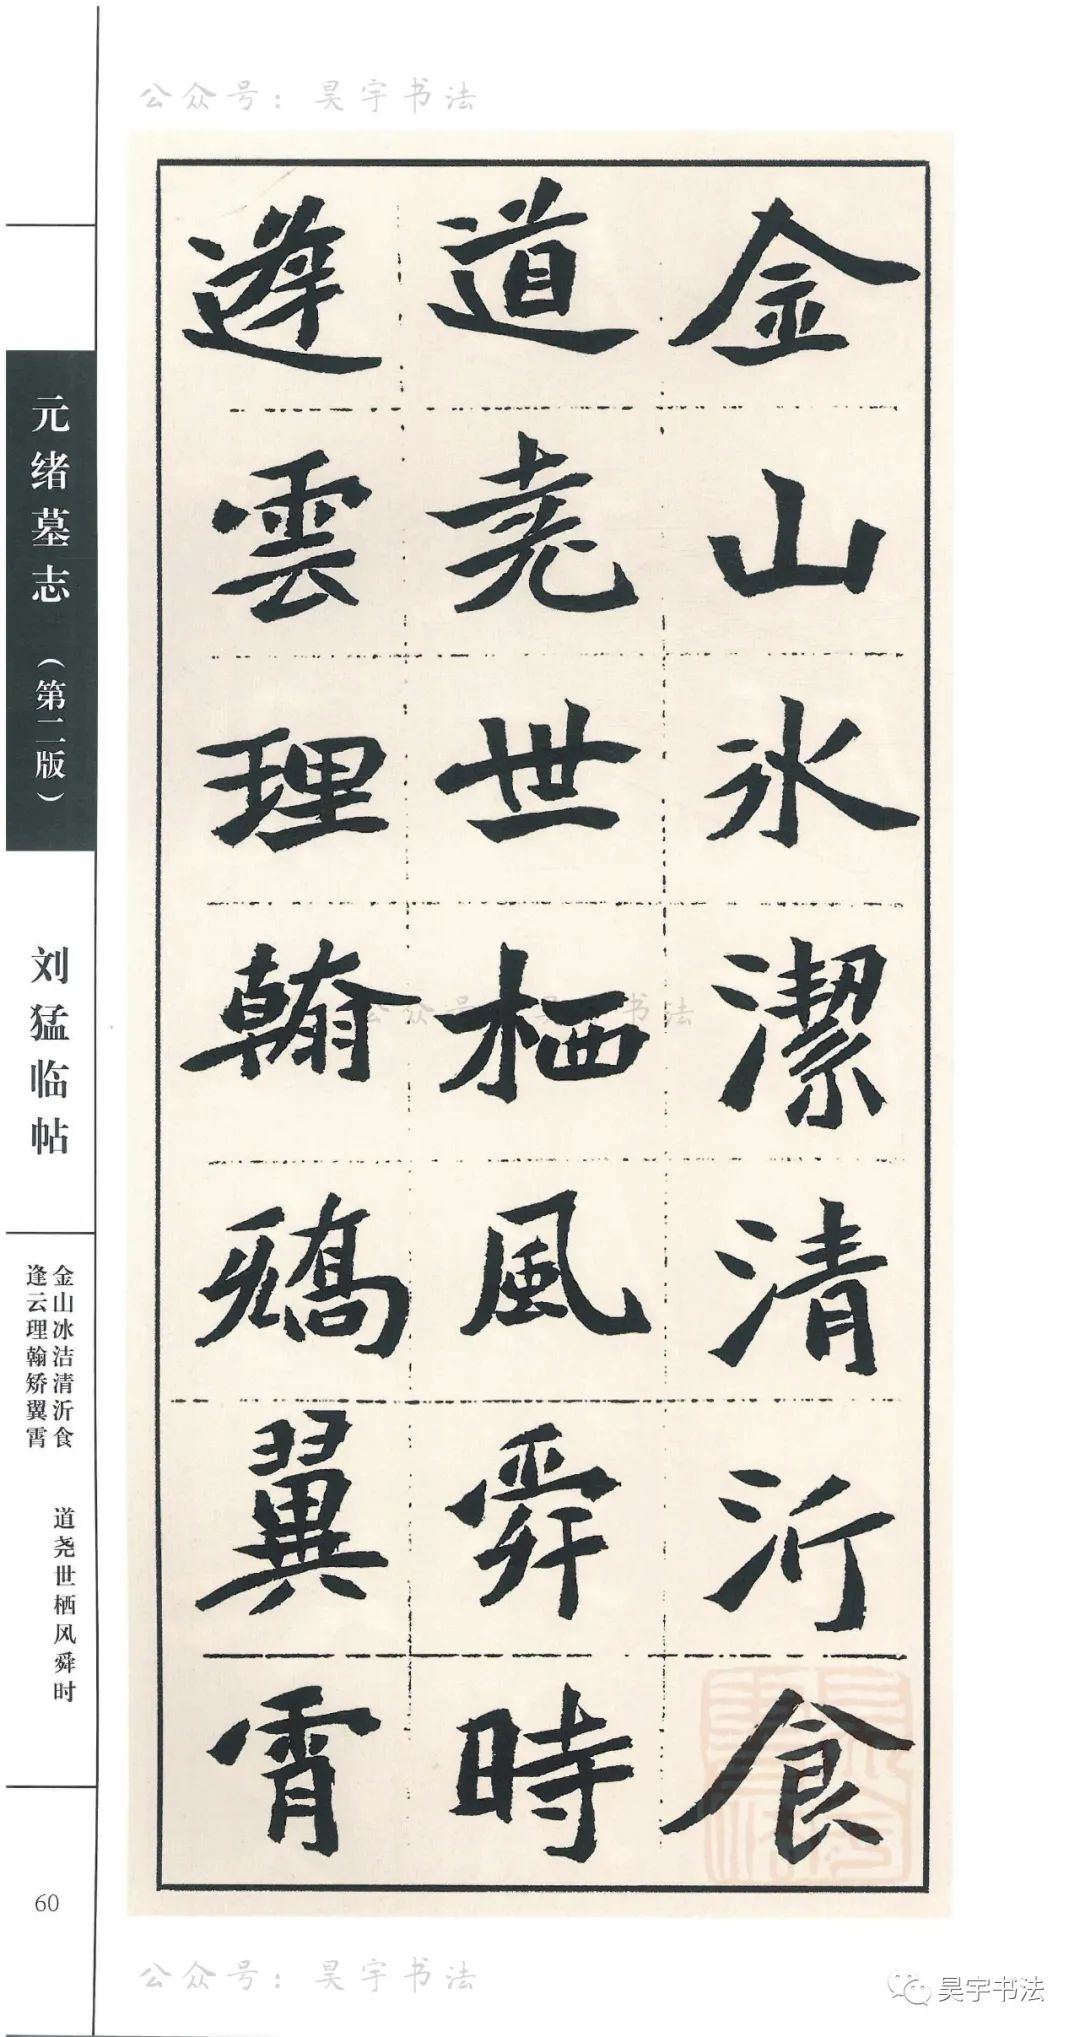 公众号：昊宇书法
金山氷潔清沂食
道尭世栖風舜時
逢雲理翰矯翼霄
元绪墓志（第二版）
刘猛临帖
金山冰洁清沂食
逢云理翰矫翼霄
道尧世栖风舜时
60
公众号：昊宇书法
公众号：昊宇书法
昊宇书法